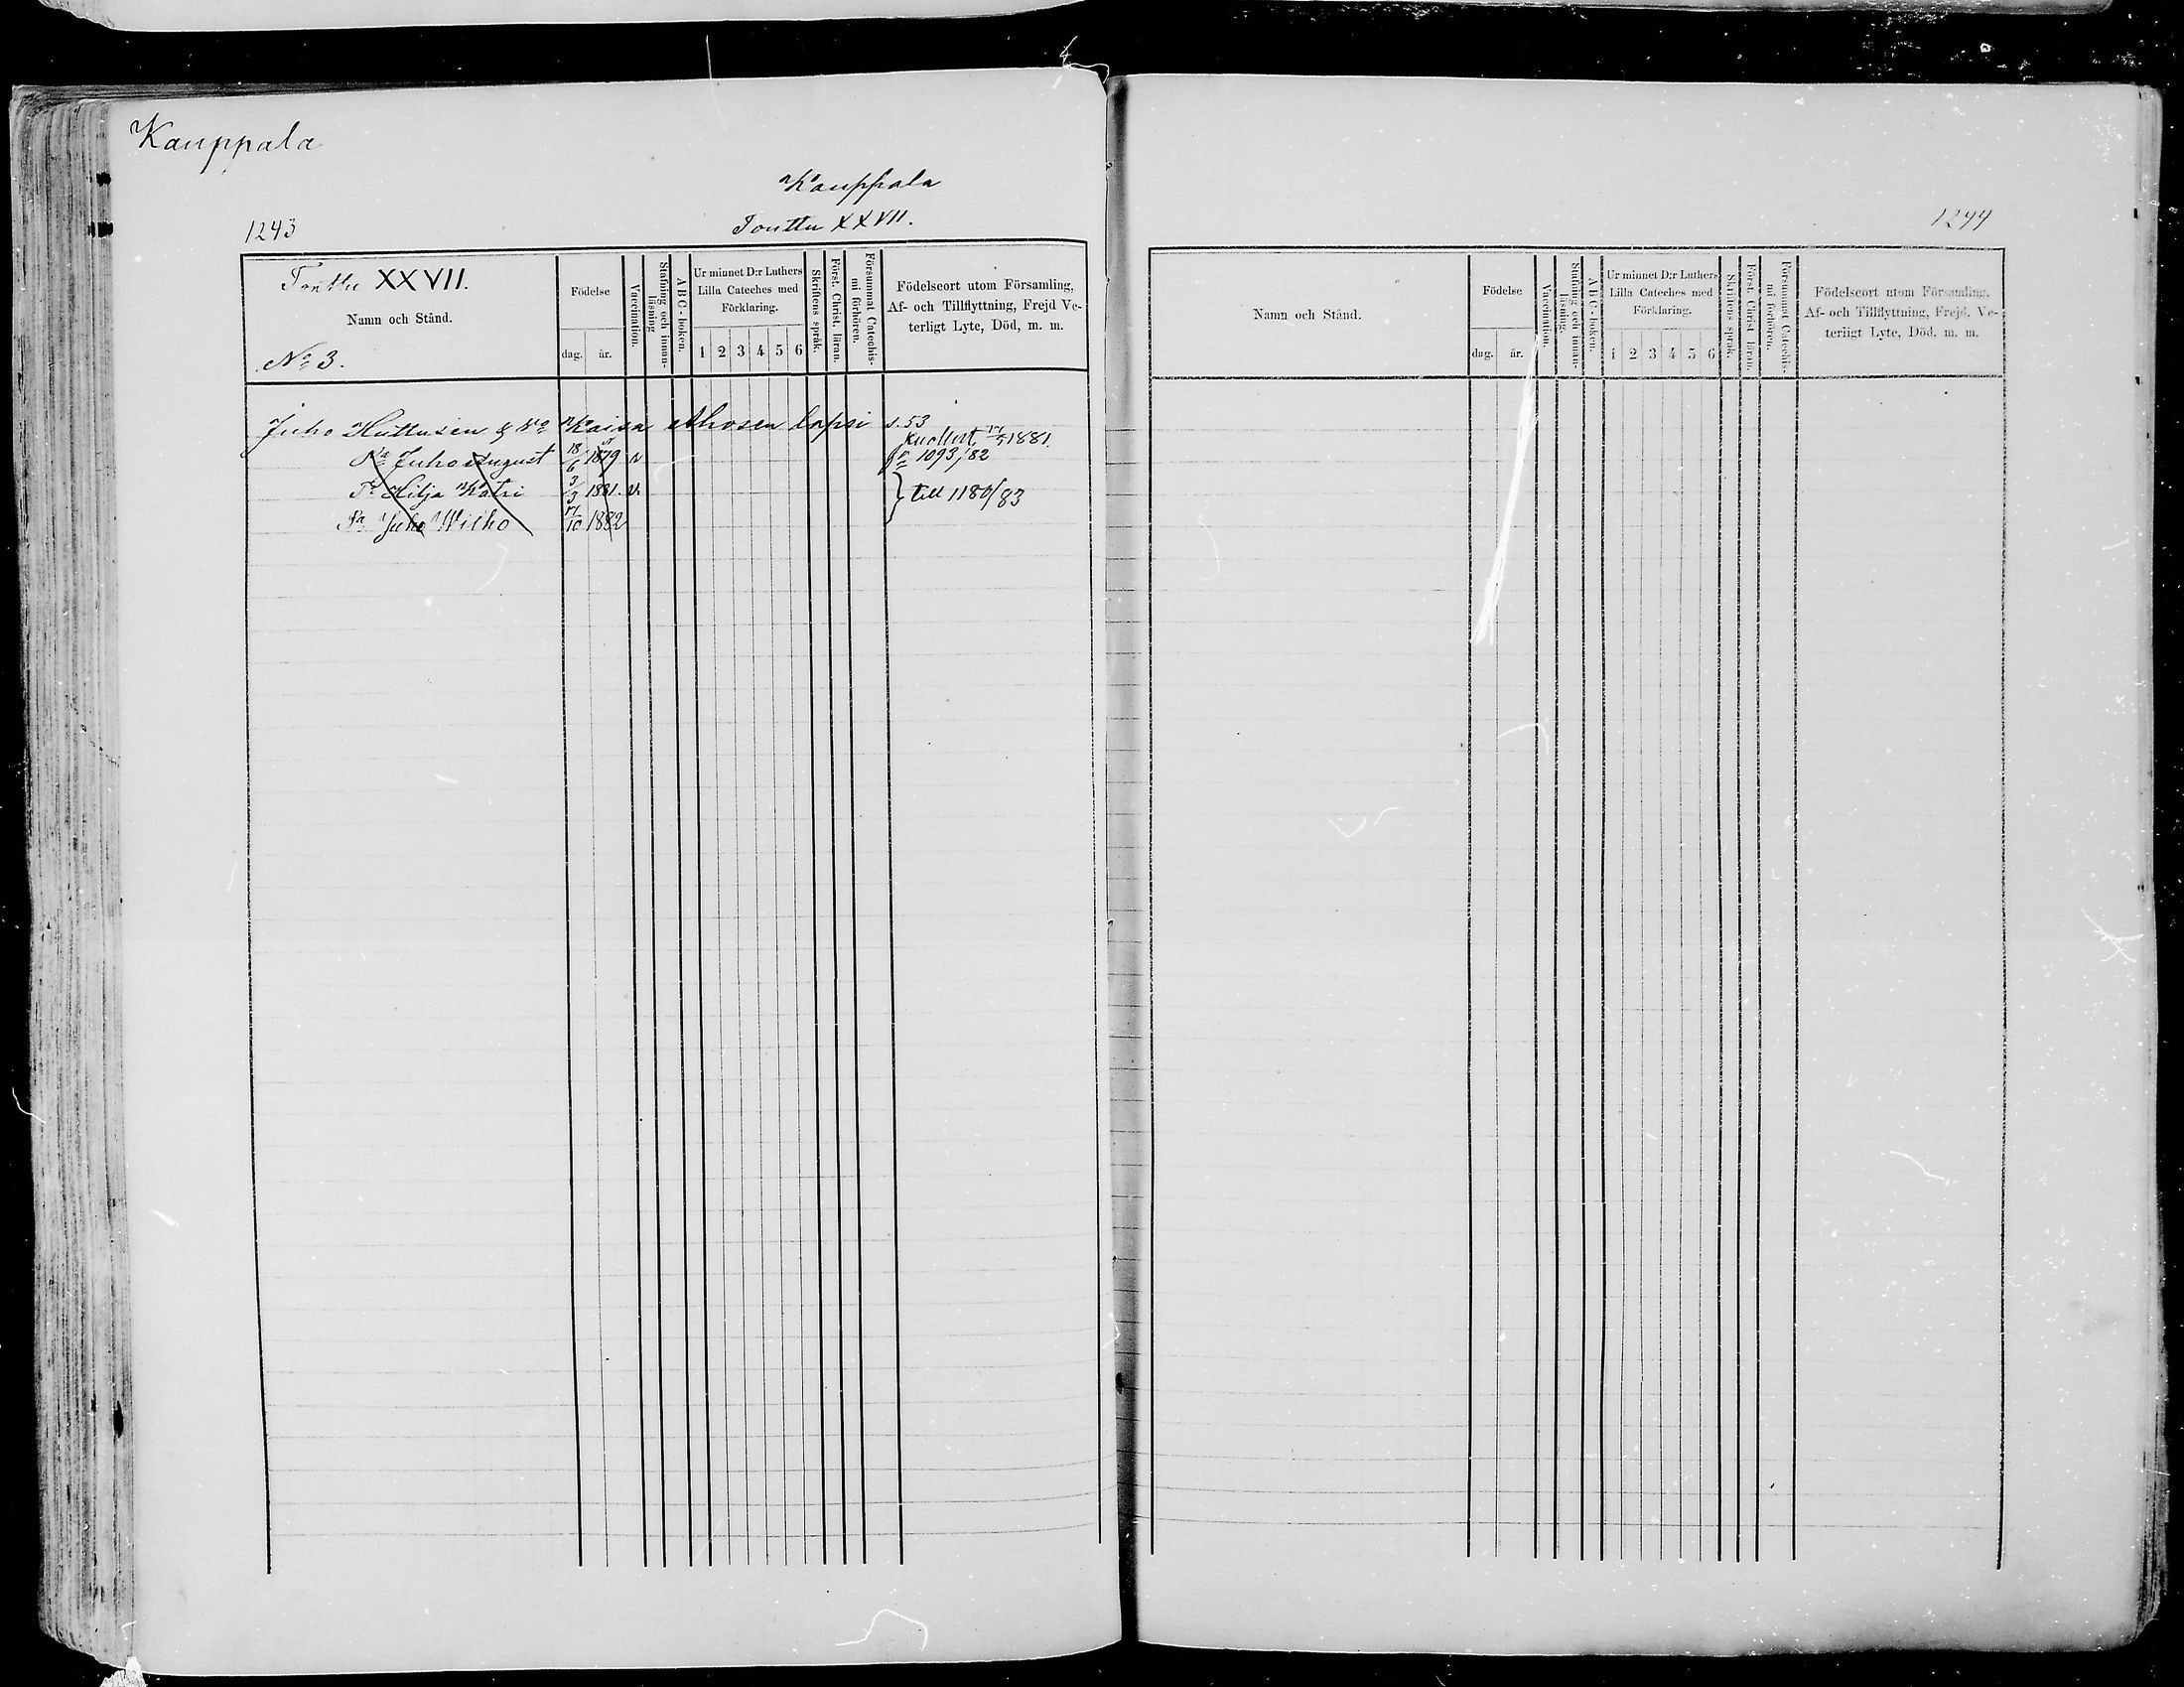 Kauppala
Kauppala
1243
Tonttu XXVII.
Tonttu XXVII.
Namn och Stånd.
No 3.
Födelse
dag. år.
Vaccination.
Stafning och innan-läsning
A B C - boken.
Ur minnet D:r Luthers
Lilla Cateches med
Förklaring.
1 2 3 4 5 6
Skriftens språk.
Först. Christ. läran.
Försummat Catechis-mi förhören.
Födelseort utom Församling,
Af- och Tillflyttning, Frejd Ve-
terligt Lyte, Död, m. m.
Juho Huttusen & Kaisa Ahosen lapsi s. 53
Kuollut 1881
Pa Juho August 18/6 1879 v 1093/82
Tr Hilja Katri 3/3 1881 v.
till 1180/83
Pa Juho Wilho 17/10 1882
1244
Namn och Stånd.
Födelse
dag. år.
Vaccination.
Stafning och innan-läsning.
A B C - boken.
Ur minnet D:r Luthers
Lilla Cateches med
Förklaring.
1 2 3 4 5 6
Skriftens språk.
Först. Christ läran.
Försummat Catechis-mi förhören.
Födelseort utom Församling,
Af- och Tillflyttning, Frejd, Ve-
terligt Lyte, Död, m. m.